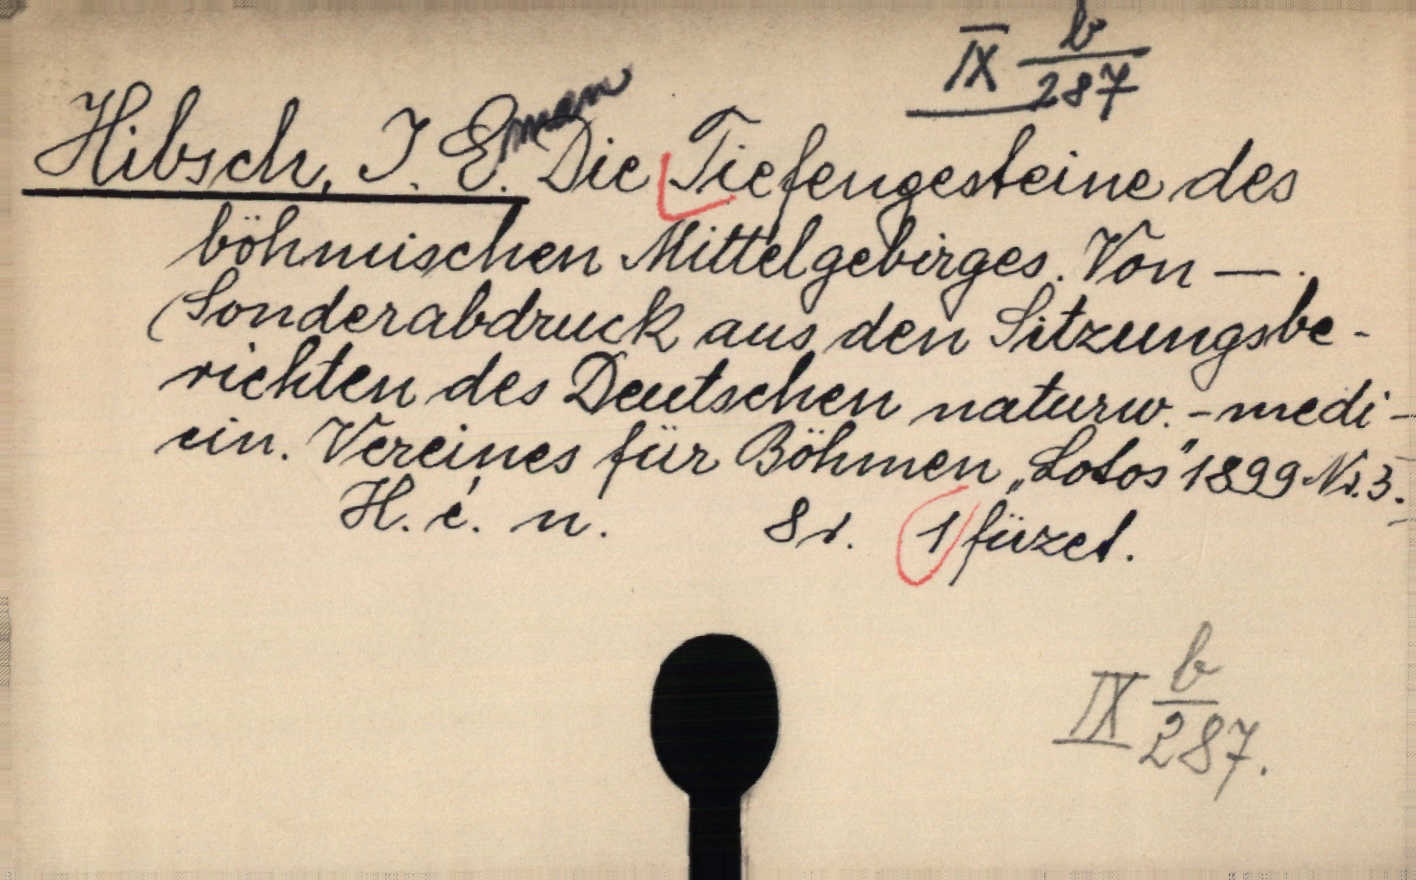 IX b/287
Hibsch, J. Eman Die Tiefengesteine des
böhmischen Mittelgebirges. Von —.
(Sonderabdruck aus den Sitzungsbe-
richten des Deutschen naturw.-medi-
cin. Vereines für Böhmen „Lotos" 1899 Nr. 3.
H. é. n. 8r. 1 füzet.
IX b/287.